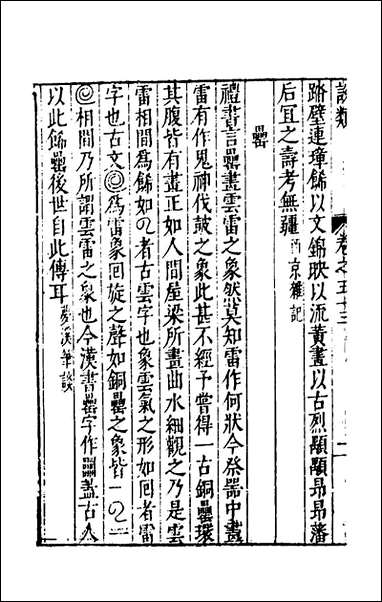 說類 卷之五十三 二
璧連璋餙以文錦映以流黄畫以古烈顒顒昂昂藩
后宜之壽考無疆 西京雜記
罍
禮書言罍畫雲雷之象然莫知雷作何狀今祭器中畫
雷有作鬼神伐鼓之象此甚不經予嘗得一古銅罍環
其腹皆有畫正如人間屋梁所畫曲水細觀之乃是雲
雷相間爲餙如者古雲字也象雲氣之形如回者雷
字也古文◎爲雷象回旋之聲如銅罍之象皆一一
◎相間乃所謂雲雷之象也今漢書罍字作蓋古人
以此餙罍後世自此傳耳 夢溪筆談